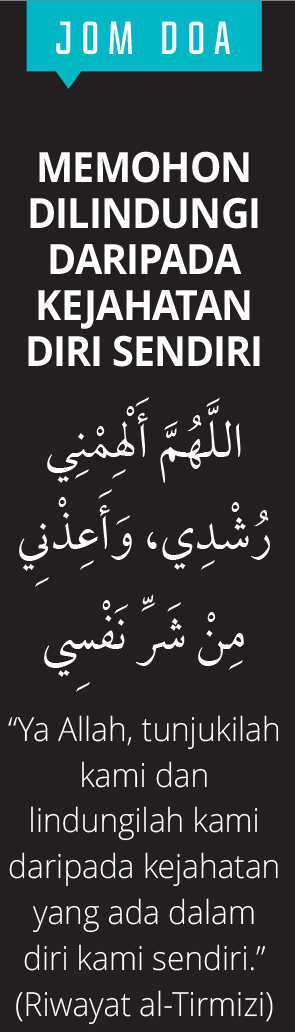 JOM DOA
MEMOHON
DILINDUNGI
DARIPADA
KEJAHATAN
DIRI SENDIRI
اللَّهُمَّ أَلْهِمْنِي
رُشْدِي، وَأَعِذْنِي
مِنْ شَرِّ نَفْسِي
“Ya Allah, tunjukilah
kami dan
lindungilah kami
daripada kejahatan
yang ada dalam
diri kami sendiri.”
(Riwayat al-Tirmizi)